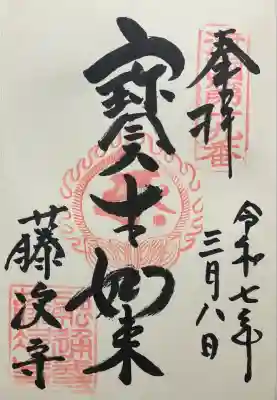 奉拝
令和七年
三月八日
寶生如来
藤次寺